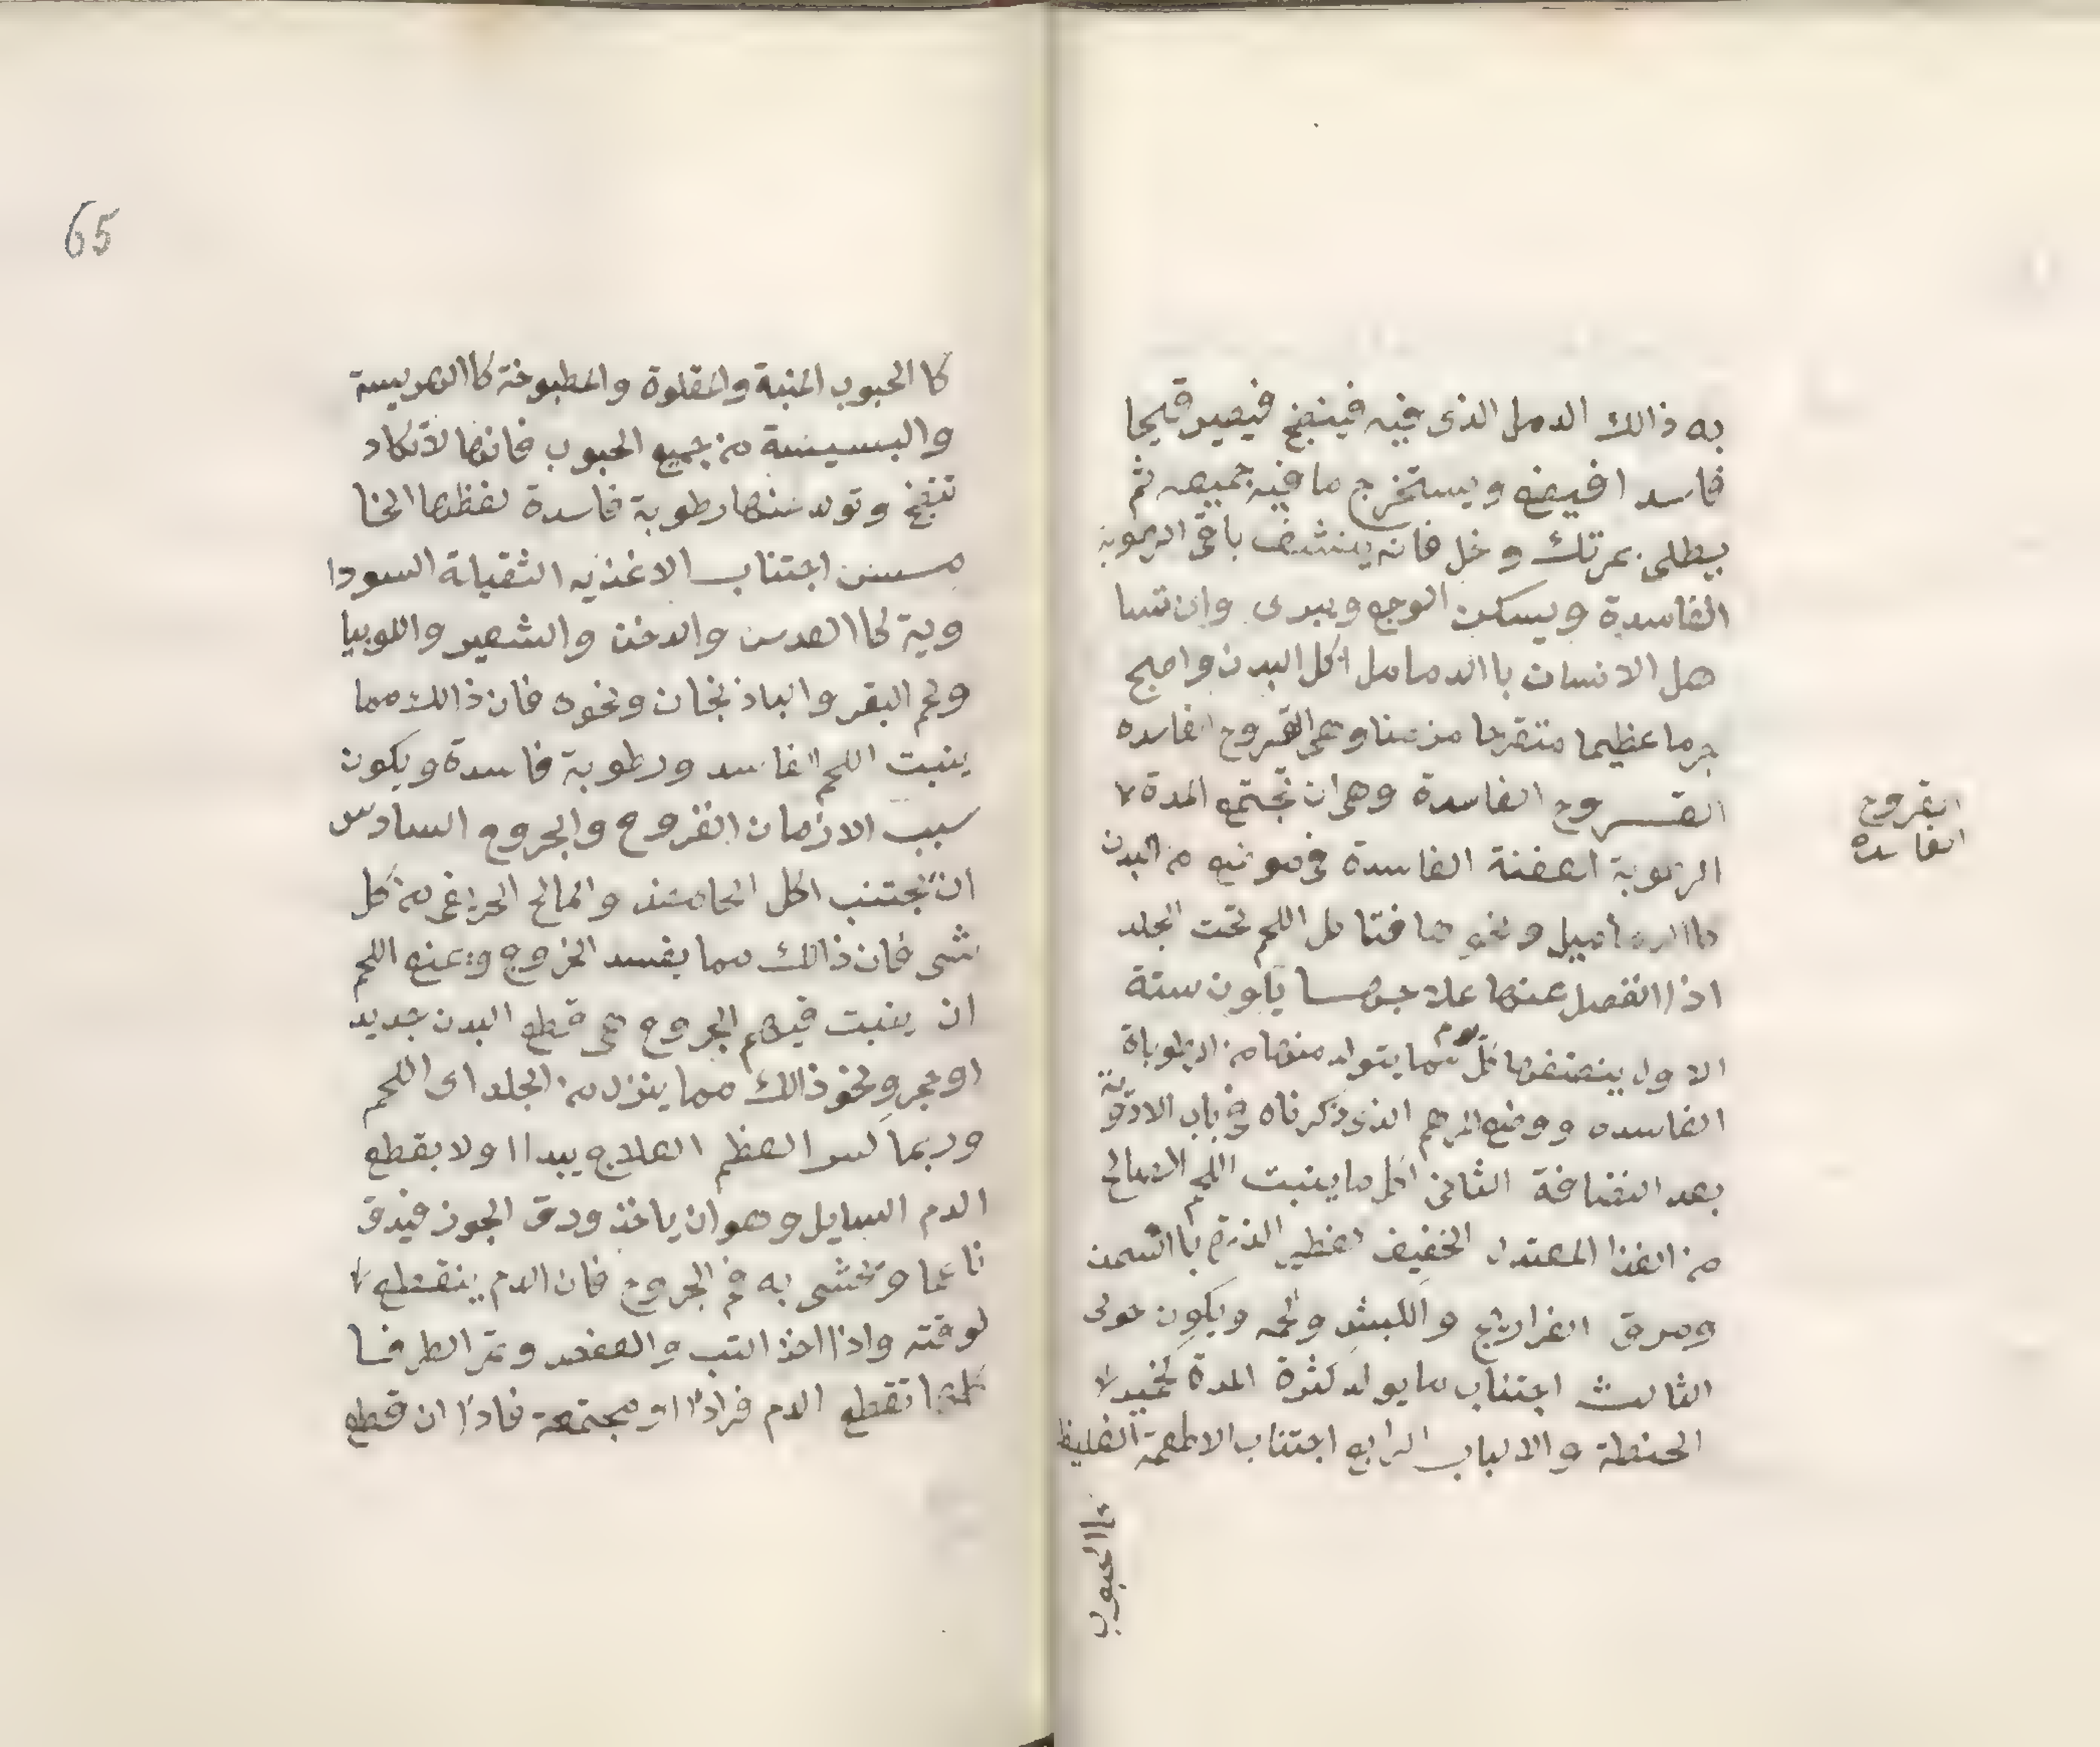 به ذالك الدمل الذى فيه فينضج فيصير قيحا
فاسدا فيبضع ويستخرج ما فيه جميعه ثم
يطلى بمرتك وخل فانه ينشف باقى الرطوبة
الفاسدة ويسكن الوجع ويبرى وان تسا
هل الانسان باالدمامل اكل البدن واصبح
جرحا عظيما متقرحا مزمنا وهى القروح الفاسده
القروح الفاسدة وهى ان تجتمع المدة لا
الرطوبة العفنة الفاسدة فى موضع من البدن
كاالدماميل ونحوها فتاكل اللحم تحت الجلد
اذا انفصل عنها علاجها يكون ستة
الاول ينضفها كل يوم مما يتولد منها من الرطوباة
الفاسده ووضع المرهم الذى ذكرناه فى باب الادوية
بعد النضافة الثانى اكل ما ينبت اللحم الصالح
من الغذا المعتدل الخفيف الفطير الذرة باالسمن
ومرق الفراريج والكبش ولحمه ويكون حولى
الثالث اجتناب ما يولد كثرة المدة كخمير لا
الحنطة والالباب الرابع اجتناب الاطعمة الغليظ
كاالحبوب
القروح
الفاسدة
65
كا الحبوب النية والمقلوة والمطبوخة كاالهريسة
والبسيسة من جميع الحبوب فانها لا تكاد
تنضج وتولد منها رطوبة فاسدة لغظها الخا
مس اجتناب الاغذيه الثقيلة السودا
وية كاالعدس والدخن والشعير واللوبيا
ولحم البقر والباذنجان ونحوه فان ذالك مما
ينبت اللحم الفاسد ورطوبة فاسدة ويكون
سبب الازمان القروح والجروح السادس
ان يجتنب اكل الحامض والمالح الحريف من كل
شى فان ذالك مما يفسد الجروح ويمنع اللحم
ان ينبت فيهم الجروح هى قطع البدن بحديد
او حجر ونحو ذالك مما ينزل من الجلد الى اللحم
وربما كسر العظم العلاج يبدا اولا بقطع
الدم السايل وهو ان ياخذ ورق الجوز فيدق
ناعما وتحشى به فم الجروح فان الدم ينقطع لا
لوقته واذا اخذ الشب والعفص وثمر الطرفا
كلها تقطع الدم فرادا او مجتمعة فاذا ان قطع